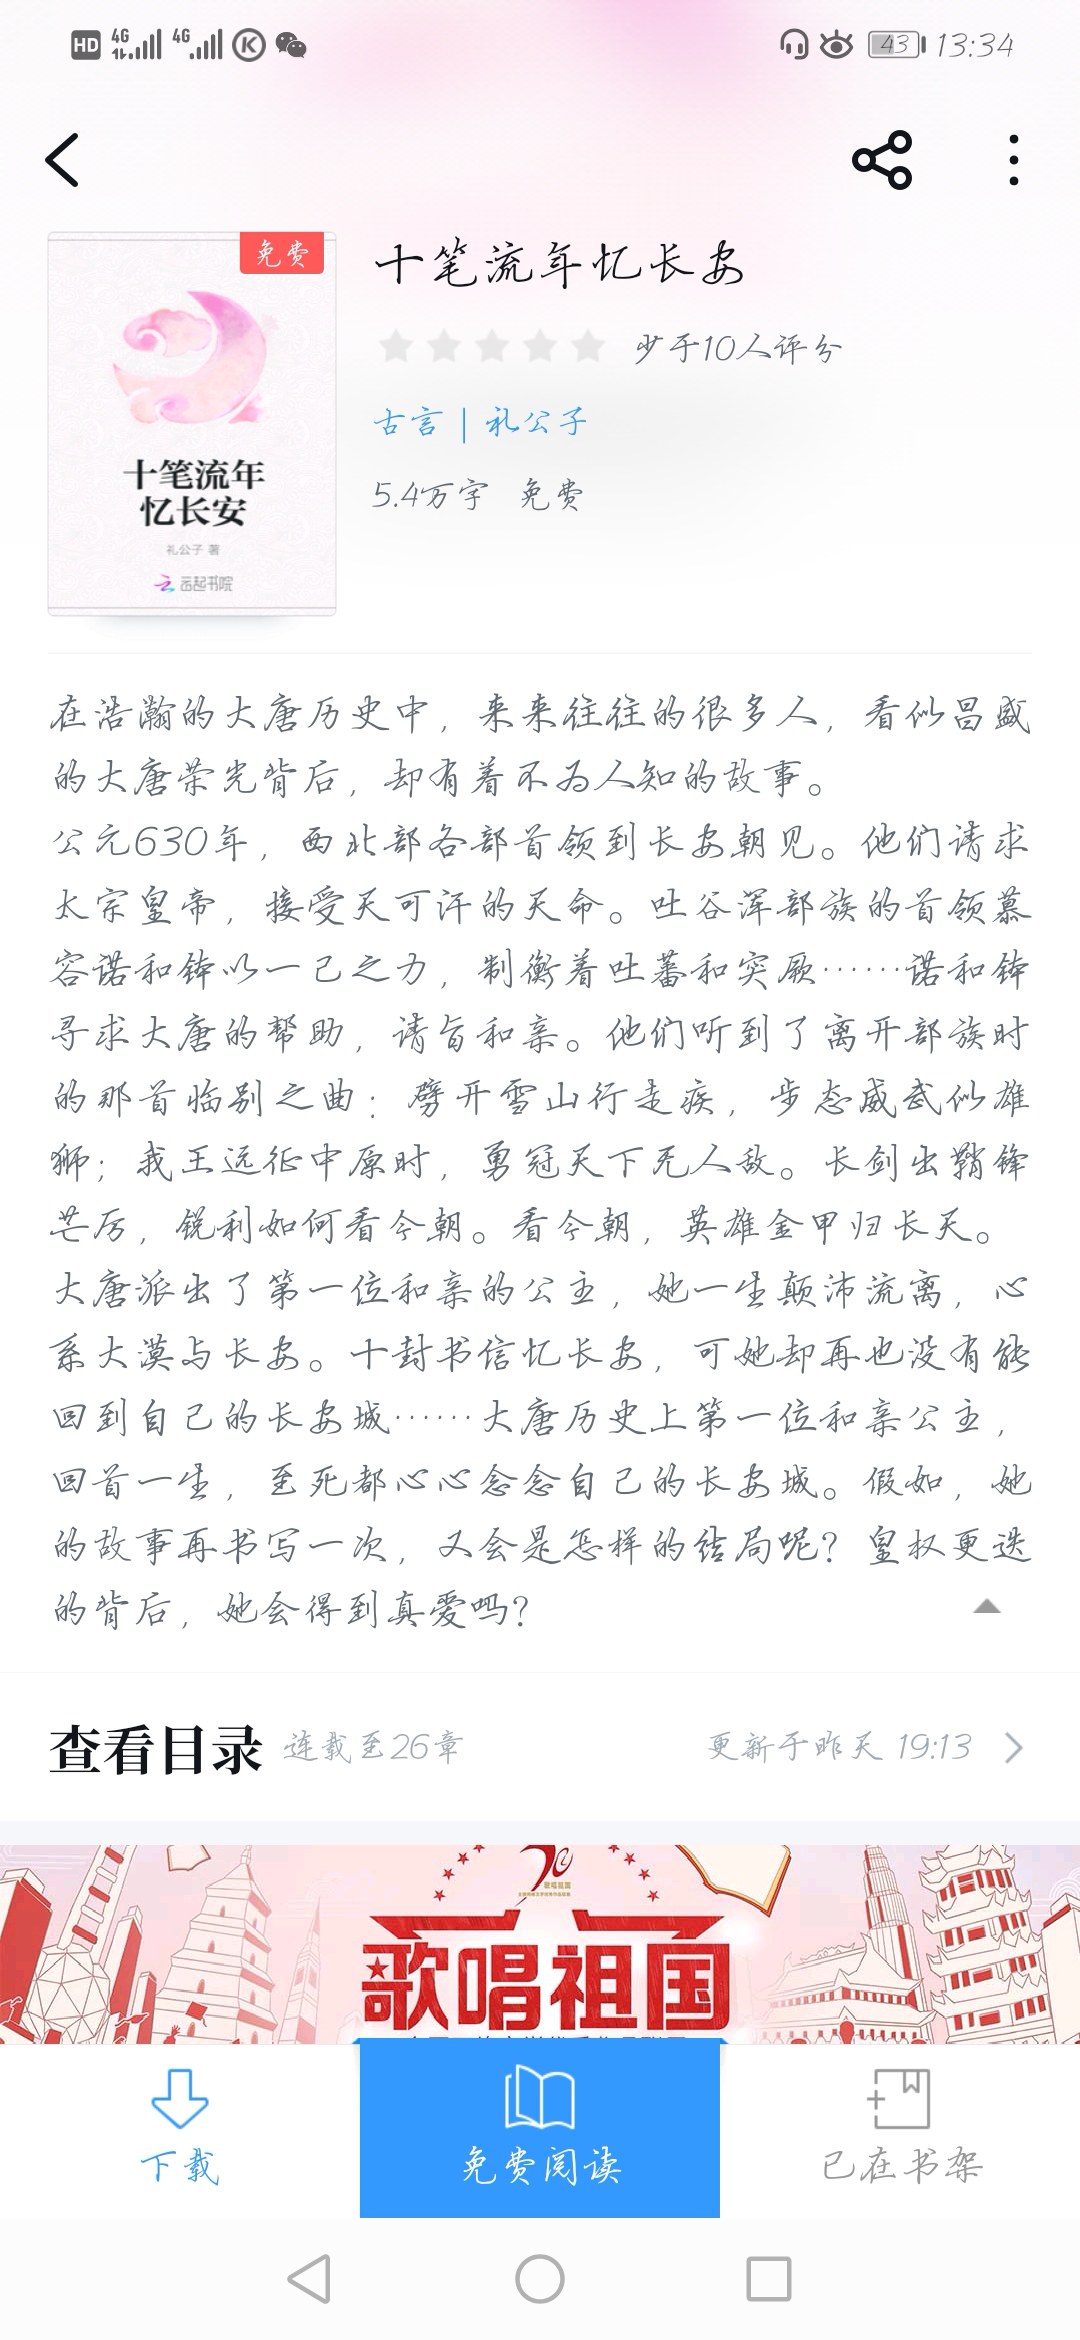 HD 4G 4G K 43 13:34
免费
十笔流年忆长安
少于10人评分
古言 | 礼公子
5.4万字 免费
十笔流年
忆长安
礼公子 著
云起书院
在浩瀚的大唐历史中，来来往往的很多人，看似昌盛
的大唐荣光背后，却有着不为人知的故事。
公元630年，西北部各部首领到长安朝见。他们请求
太宗皇帝，接受天可汗的天命。吐谷浑部族的首领慕
容诺和钵以一己之力，制衡着吐蕃和突厥……诺和钵
寻求大唐的帮助，请旨和亲。他们听到了离开部族时
的那首临别之曲：劈开雪山行走疾，步态威武似雄
狮；我王远征中原时，勇冠天下无人敌。长剑出鞘锋
芒厉，锐利如何看今朝。看今朝，英雄金甲归长天。
大唐派出了第一位和亲的公主，她一生颠沛流离，心
系大漠与长安。十封书信忆长安，可她却再也没有能
回到自己的长安城……大唐历史上第一位和亲公主，
回首一生，至死都心心念念自己的长安城。假如，她
的故事再书写一次，又会是怎样的结局呢？皇权更迭
的背后，她会得到真爱吗？
查看目录 连载至26章 更新于昨天 19:13
歌唱祖国
下载 免费阅读 已在书架